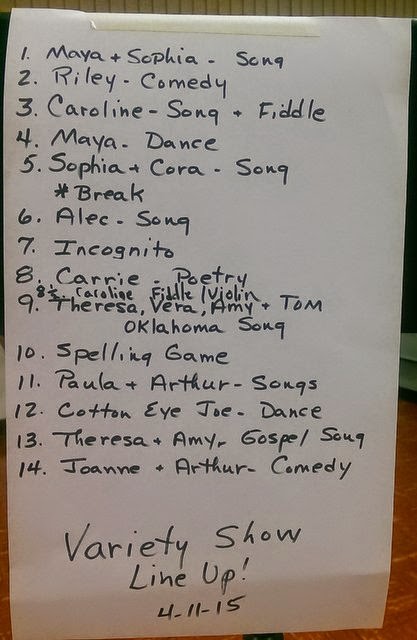 1. Maya + Sophia - Song
2. Riley - Comedy
3. Caroline - Song + Fiddle
4. Maya - Dance
5. Sophia + Cora - Song
* Break
6. Alec - Song
7. Incognito
8. Carrie - Poetry
8½ Caroline Fiddle/Violin
9. Theresa, Vera, Amy + Tom
Oklahoma Song
10. Spelling Game
11. Paula + Arthur - Songs
12. Cotton Eye Joe - Dance
13. Theresa + Amy, Gospel Song
14. Joanne + Arthur - Comedy
Variety Show
Line Up!
4-11-15